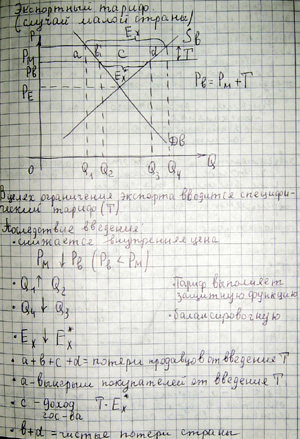 Экспортный тариф
(случай малой страны)
P
Eₓ
Sв
Pм
a
b
c
d
T
Pв
Eₓ*
Pв = Pм + T
PE
Dв
0
Q₁
Q₂
Q₃
Q₄
Q
В целях ограничения экспорта вводится специфи-
ческий тариф (T)
Последствие введения:
• снижается внутренняя цена
Pм ↓ Pв (Pв < Pм)
• Q₁ ↑ Q₂
• Тариф выполняет
защитную функцию
• Q₄ ↓ Q₃
• балансировочную
• Eₓ ↓ Eₓ*
• a+b+c+d = потери продавцов от введения T
• a - выигрыш покупателей от введения T
• c - доход T · Eₓ*
гос-ва
• b+d = чистые потери страны